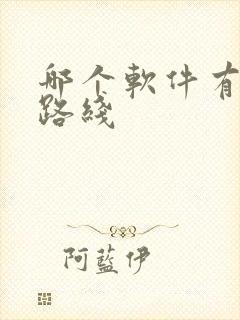 哪个軟件有
路綫
阿藍伊